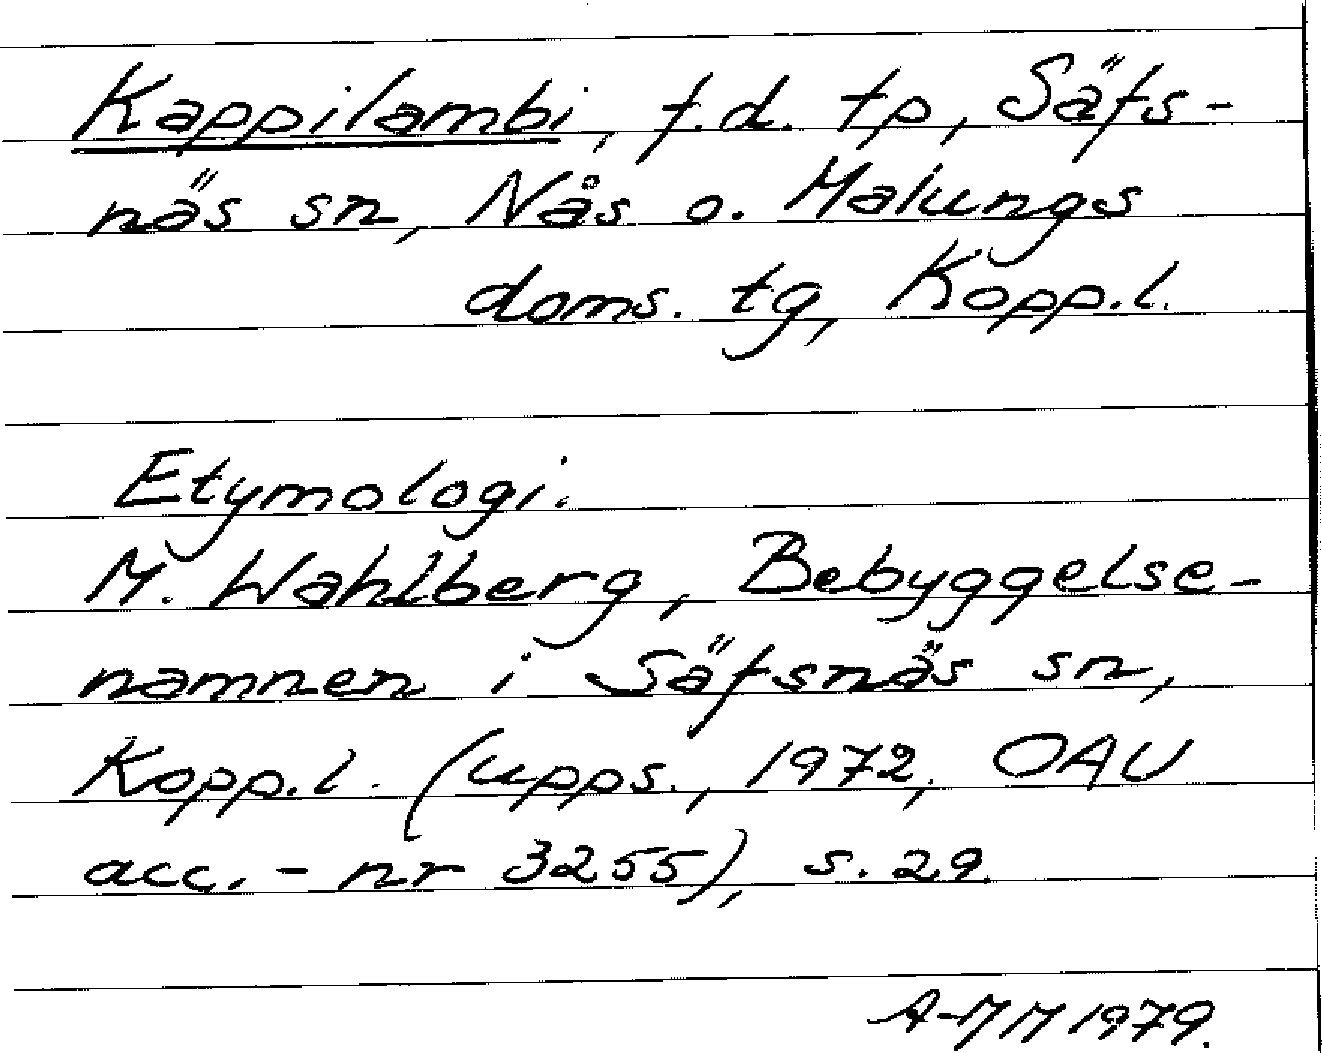 Kappilambi, f.d. tp, Säfs-
näs sn, Nås o. Malungs
doms. tg, Kopp.l.
Etymologi.
M. Wahlberg, Bebyggelse-
namnen i Säfsnäs sn,
Kopp.l. (upps., 1972, OAU
acc.-nr 3255), s. 29.
A-MM 1979.